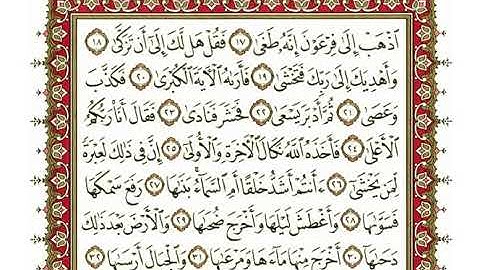 ٱذْهَبْ إِلَىٰ فِرْعَوْنَ إِنَّهُۥ طَغَىٰ ١٧ فَقُلْ هَل لَّكَ إِلَىٰٓ أَن تَزَكَّىٰ ١٨
وَأَهْدِيَكَ إِلَىٰ رَبِّكَ فَتَخْشَىٰ ١٩ فَأَرَىٰهُ ٱلْـَٔايَةَ ٱلْكُبْرَىٰ ٢٠ فَكَذَّبَ
وَعَصَىٰ ٢١ ثُمَّ أَدْبَرَ يَسْعَىٰ ٢٢ فَحَشَرَ فَنَادَىٰ ٢٣ فَقَالَ أَنَا۠ رَبُّكُمُ
ٱلْأَعْلَىٰ ٢٤ فَأَخَذَهُ ٱللَّهُ نَكَالَ ٱلْـَٔاخِرَةِ وَٱلْأُولَىٰٓ ٢٥ إِنَّ فِى ذَٰلِكَ لَعِبْرَةً
لِّمَن يَخْشَىٰٓ ٢٦ ءَأَنتُمْ أَشَدُّ خَلْقًا أَمِ ٱلسَّمَآءُ ۚ بَنَىٰهَا ٢٧ رَفَعَ سَمْكَهَا
فَسَوَّىٰهَا ٢٨ وَأَغْطَشَ لَيْلَهَا وَأَخْرَجَ ضُحَىٰهَا ٢٩ وَٱلْأَرْضَ بَعْدَ ذَٰلِكَ
دَحَىٰهَآ ٣٠ أَخْرَجَ مِنْهَا مَآءَهَا وَمَرْعَىٰهَا ٣١ وَٱلْجِبَالَ أَرْسَىٰهَا ٣٢